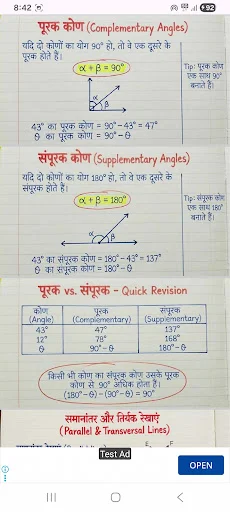 8:42
92
पूरक कोण (Complementary Angles)
यदि दो कोणों का योग 90° हो, तो वे एक दूसरे के
पूरक होते हैं।
α + β = 90°
Tip: पूरक कोण
एक साथ 90°
बनाते हैं।
α
β
43° का पूरक कोण = 90° - 43° = 47°
θ का पूरक कोण = 90° - θ
संपूरक कोण (Supplementary Angles)
यदि दो कोणों का योग 180° हो, तो वे एक दूसरे के
संपूरक होते हैं।
α + β = 180°
Tip: संपूरक कोण
एक साथ 180°
बनाते हैं।
α
β
43° का संपूरक कोण = 180° - 43° = 137°
θ का संपूरक कोण = 180° - θ
पूरक vs. संपूरक - Quick Revision
कोण पूरक संपूरक
(Angle) (Complementary) (Supplementary)
43° 47° 137°
12° 78° 168°
θ 90° - θ 180° - θ
किसी भी कोण का संपूरक कोण उसके पूरक
कोण से 90° अधिक होता है।
(180° - θ) - (90° - θ) = 90°
समानांतर और तिर्यक रेखाएं
(Parallel & Transversal Lines)
Test Ad
OPEN